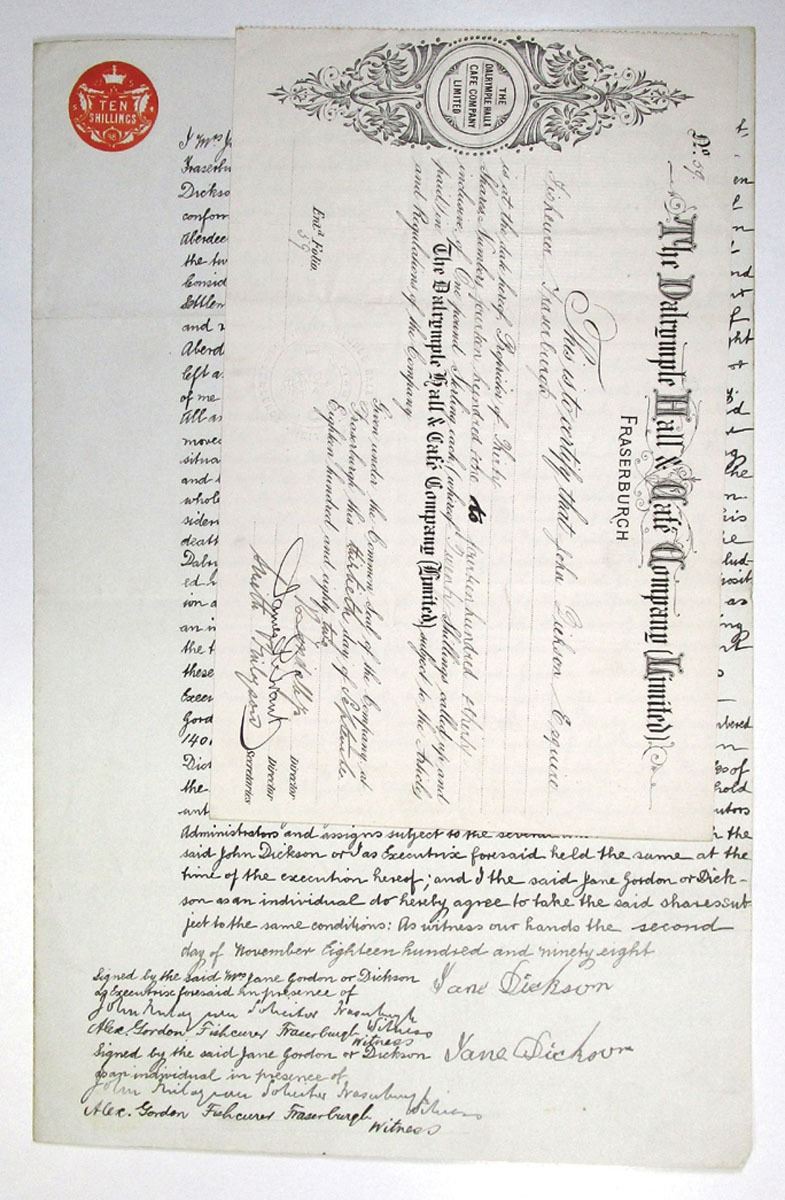 TEN
SHILLINGS
THE
DALRYMPLE HALL
CAFE COMPANY
LIMITED
No. 59.
The Dalrymple Hall & Café Company (Limited).
FRASERBURGH
This is to certify that John Dickson Esquire
Fishcurer Fraserburgh
is at the date hereof Proprietor of Thirty
Shares Numbers fourteen hundred & one to fourteen hundred & thirty
inclusive, of One pound Sterling each (whereof Shillings called up and
paid) in The Dalrymple Hall & Café Company (Limited) subject to the Articles
and Regulations of the Company.
Given under the Common Seal of the Company at
Fraserburgh this thirtieth day of September
Eighteen hundred and eighty two
Director
Director
Secretaries
Entd. Folio
59
I Mrs J
Fraserbu
Dickso
conform
Aberdee
the tw
Consid
Settlem
and
Aberd
left a
of me
All a
move
situa
and
whole
siden
death
Dalry
ed h
ion a
an i
the t
these
Exec
Gord
140
Dic
the
unt
Administrators and assigns subject to the several the
said John Dickson or I as Executrix foresaid held the same at the
time of the execution hereof; and I the said Jane Gordon or Dick-
son as an individual do hereby agree to take the said shares sub-
ject to the same conditions: As witness our hands the second
day of November Eighteen hundred and ninety eight
Signed by the said Mrs Jane Gordon or Dickson
as Executrix foresaid in presence of
Jane Dickson
John Solicitor Fraserburgh Witness
Alex. Gordon Fishcurer Fraserburgh Witness
Signed by the said Jane Gordon or Dickson
as an individual in presence of
Jane Dickson
John Solicitor Fraserburgh Witness
Alex. Gordon Fishcurer Fraserburgh
Witness